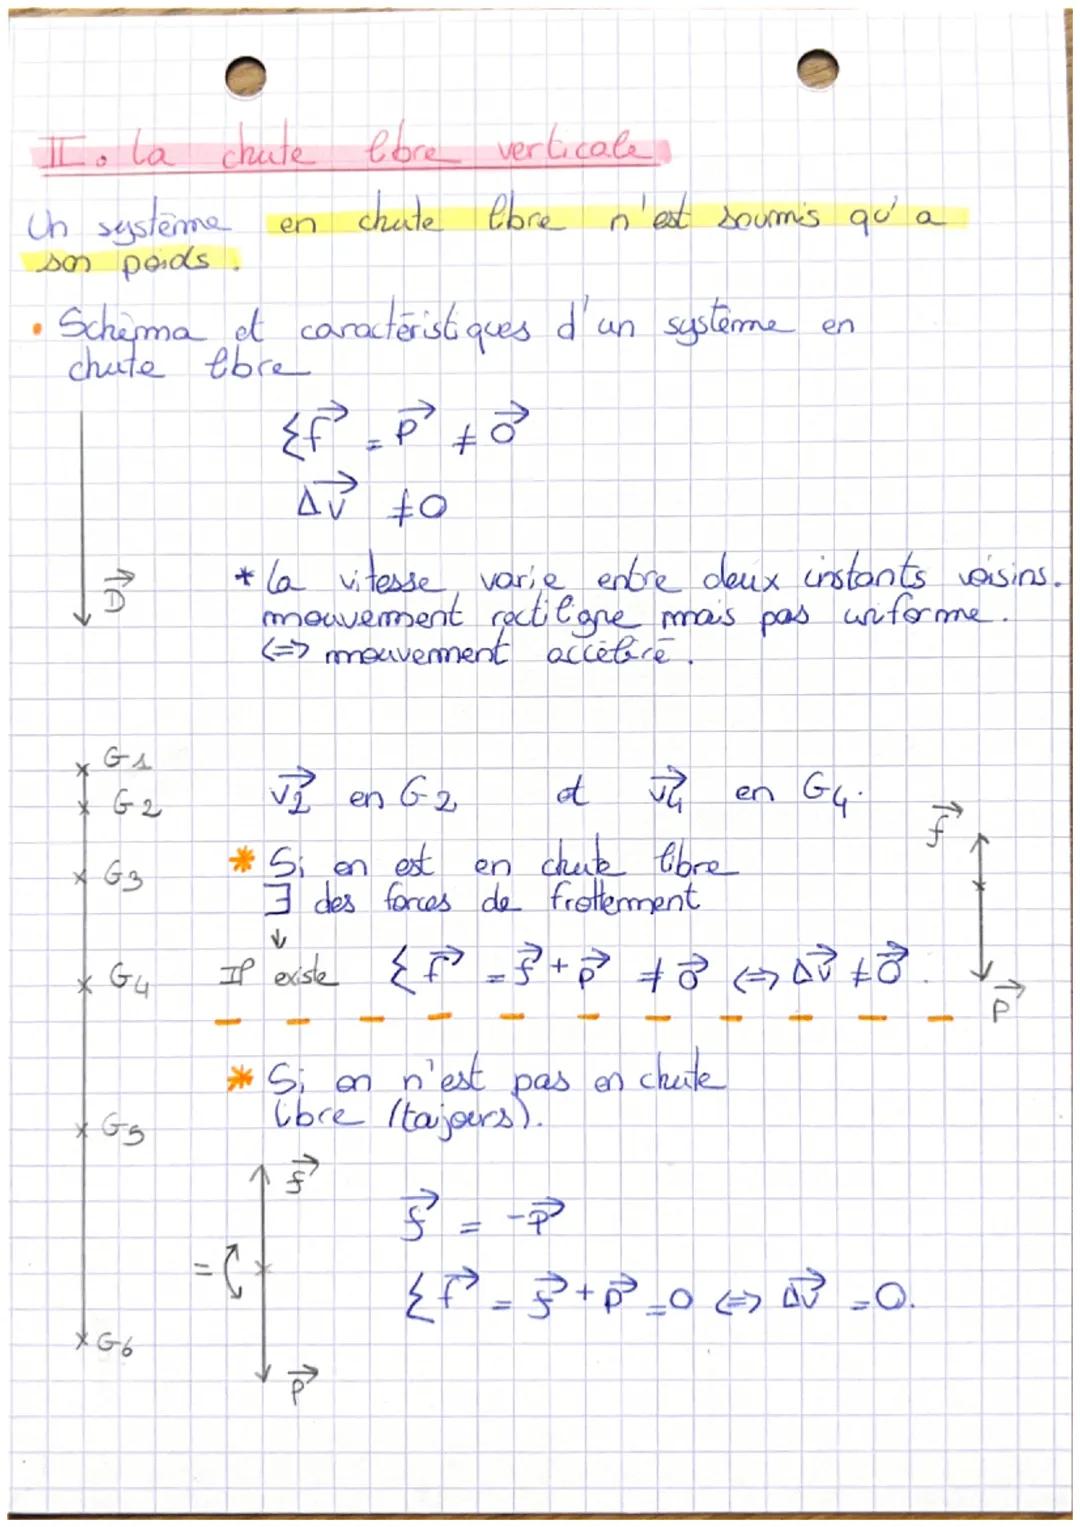 II. La chute libre verticale
Un système en chute libre n'est soumis qu'a
son poids.
• Schéma et caractéristiques d'un système en
chute libre
Σf⃗ = P⃗ ≠ 0⃗
Δv⃗ ≠ 0
D⃗
* La vitesse varie entre deux instants voisins.
mouvement rectiligne mais pas uniforme.
<=> mouvement accéléré.
G1
G2
G3
G4
G5
G6
v2⃗ en G2 et v4⃗ en G4.
* Si on est en chute libre
∃ des forces de frottement
↓
Il existe Σf⃗ = f⃗ + P⃗ ≠ 0⃗ <=> Δv⃗ ≠ 0⃗.
f⃗
P⃗
* Si on n'est pas en chute
libre (tajours).
f⃗
= 
P⃗
f⃗ = -P⃗
Σf⃗ = f⃗ + P⃗ = 0 <=> Δv⃗ = 0.